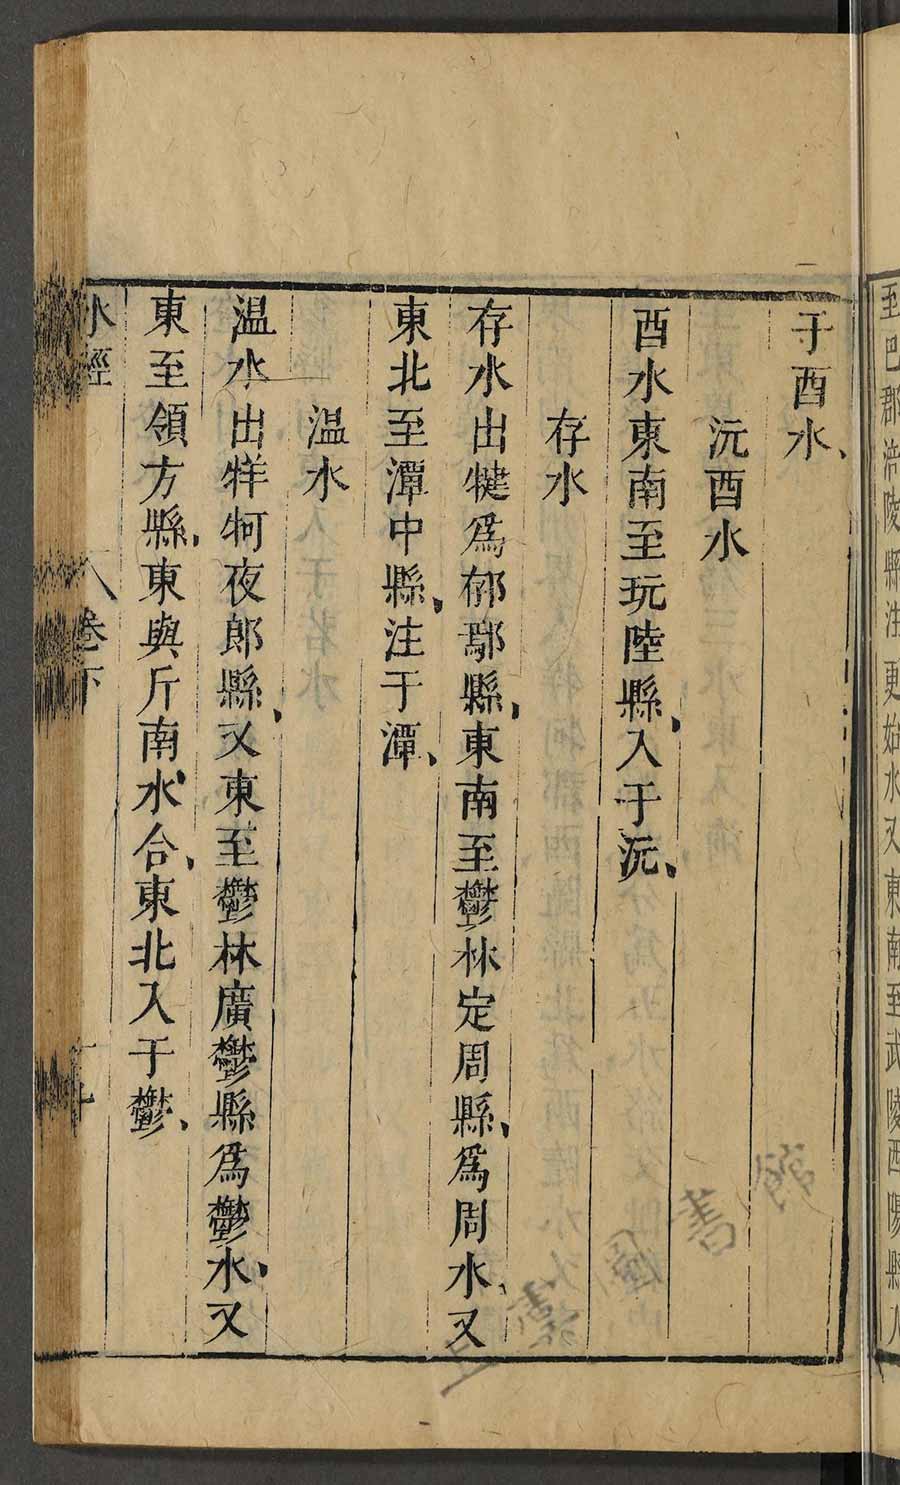 至巴郡涪陵縣注更始水又東南至武陵酉陽縣入
于酉水、
沅酉水
酉水東南至玩陸縣、入于沅、
存水
存水出犍爲郁鄢縣、東南至鬱林定周縣、爲周水、又
東北至潭中縣、注于潭、
温水
温水出牂牱夜郎縣、又東至鬱林廣鬱縣爲鬱水、又
東至領方縣、東與斤南水合、東北入于鬱、
水經 卷下